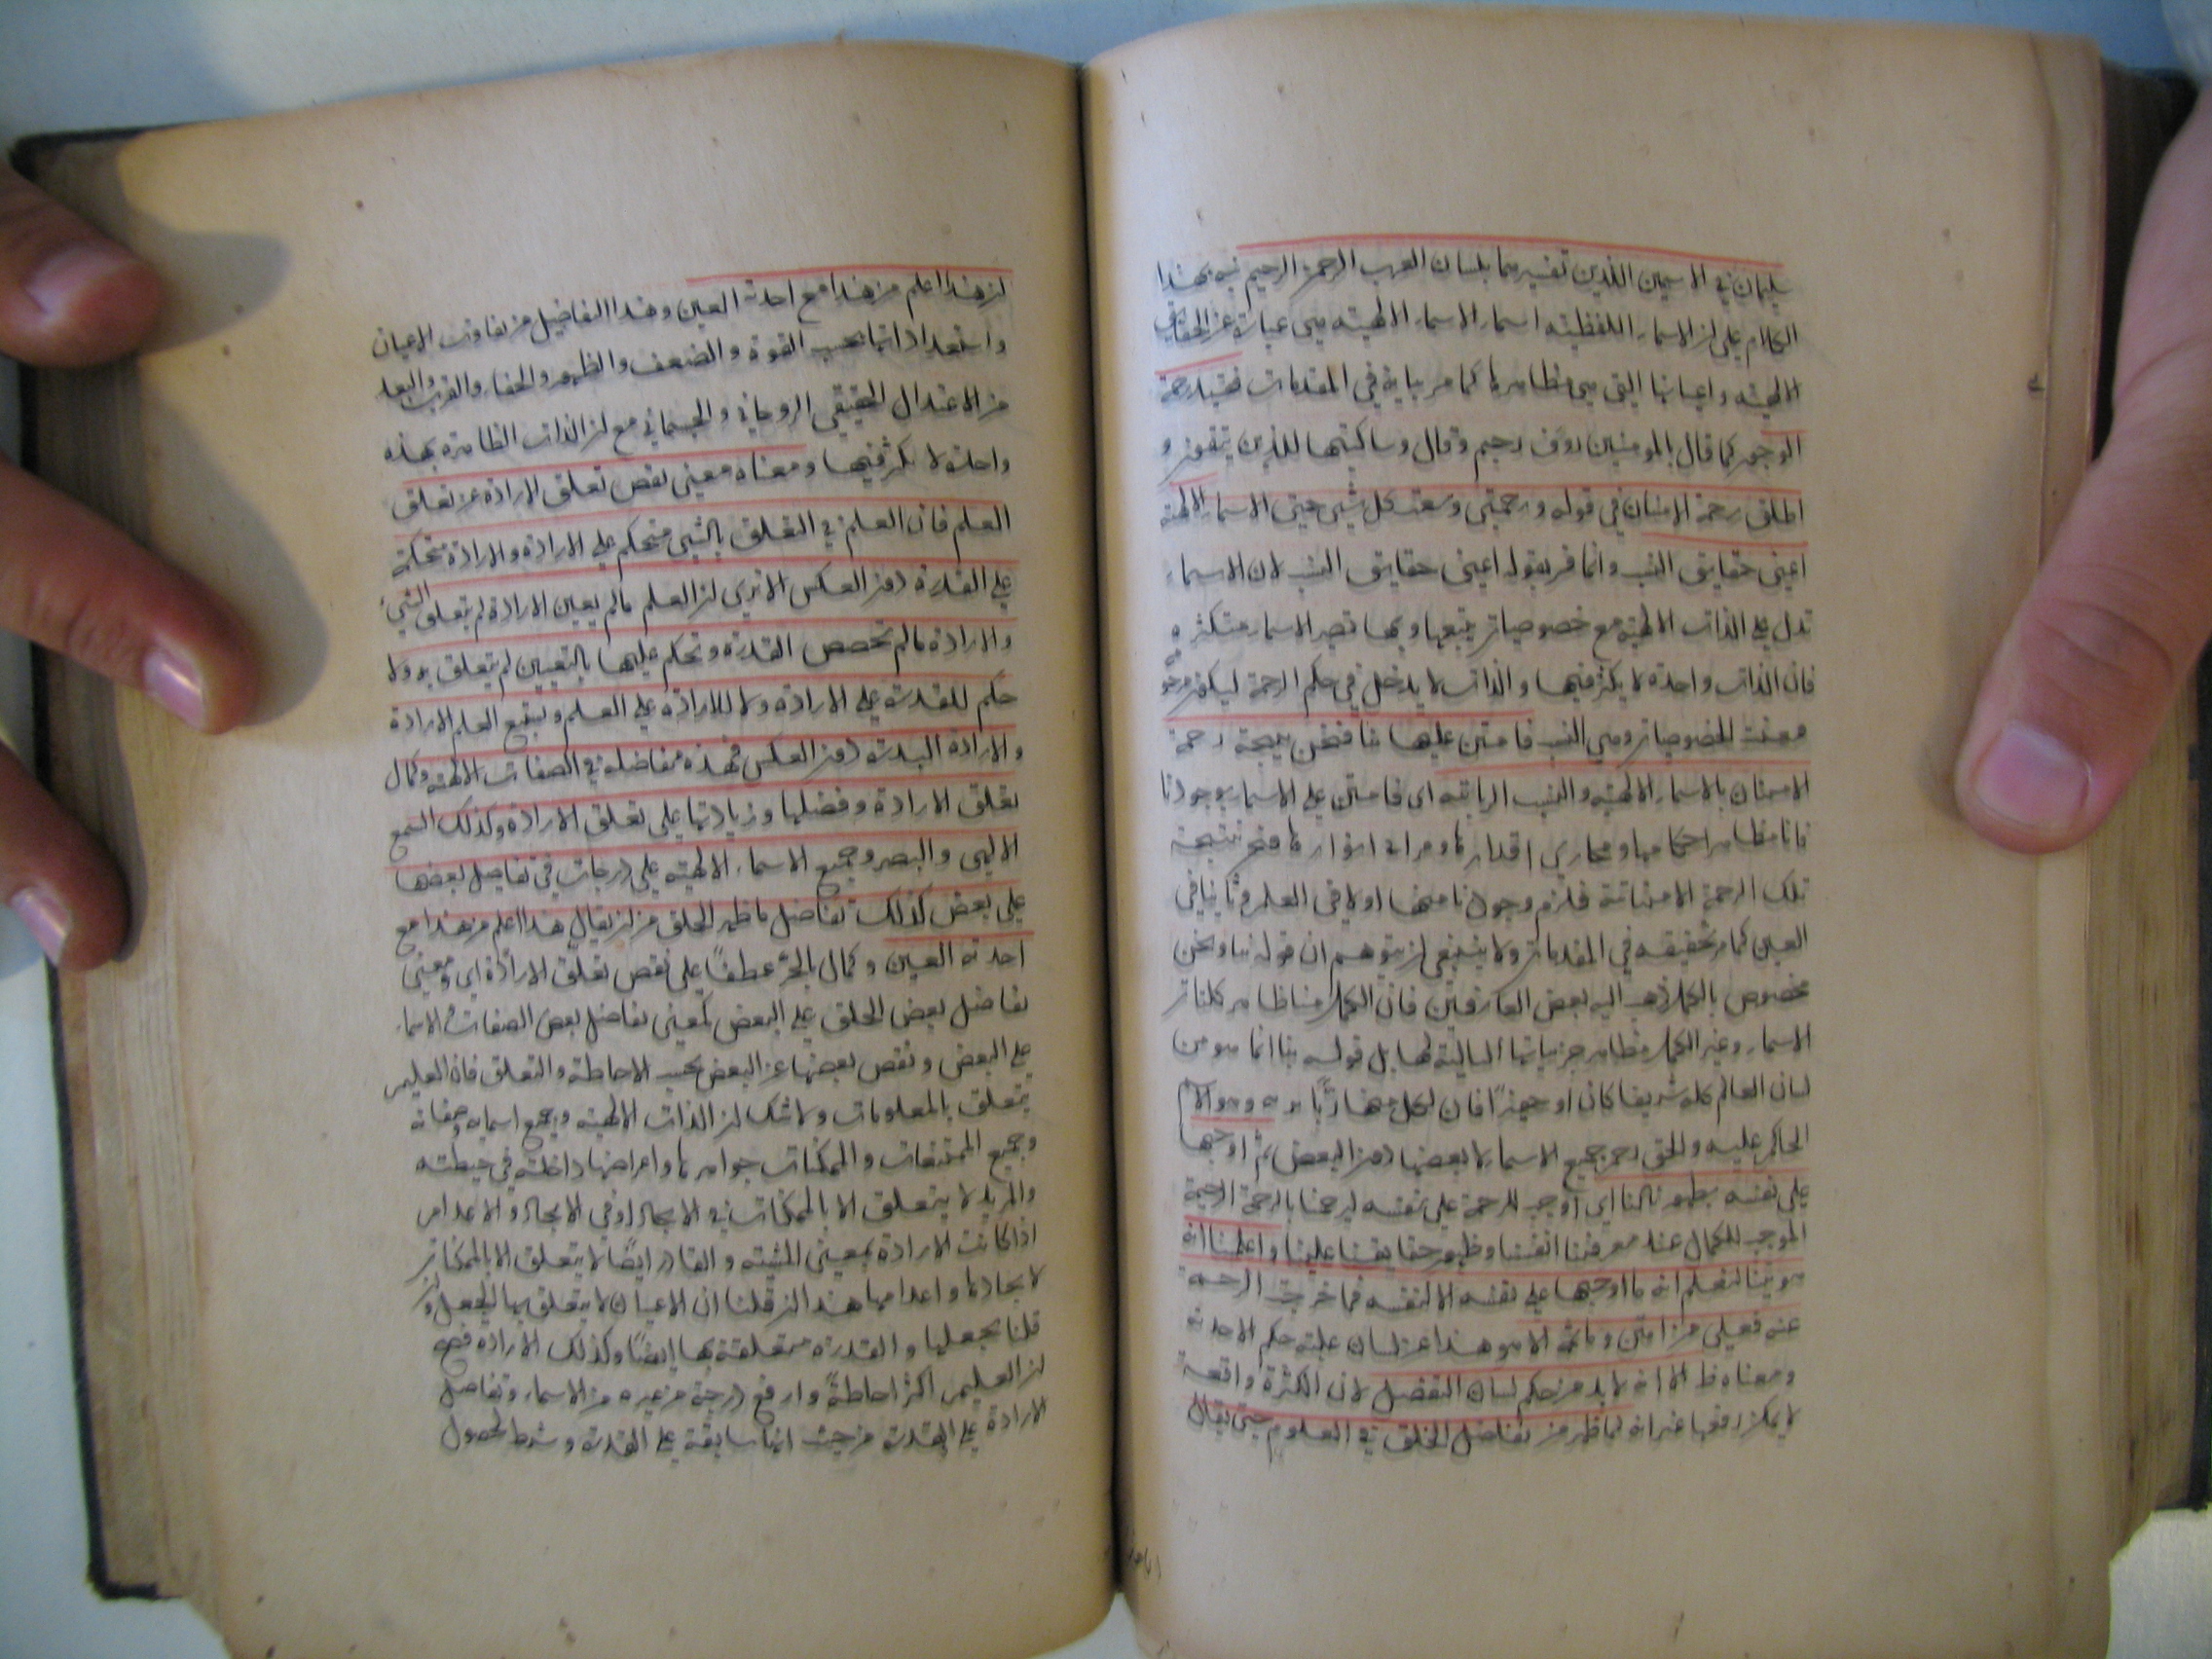 سليمان في الاسمين اللذين تفسيرهما بلسان العرب الرحمن الرحيم نبه بهذا
الكلام على ان الاسماء اللفظية اسماء الاسماء الالهية وهى عبارة عن الحقايق
الالهية واعيانها التى هى مظاهرها كما مر بيانه في المقدمات فقيد رحمة
الوجوب كما قال بالمومنين روف رحيم وقال وساكتبها للذين يتقون و
اطلق رحمة الامتنان في قوله ورحمتى وسعت كل شىء حتى الاسماء الالهية
اعنى حقايق النسب وانما قر بقوله اعنى حقايق النسب لان الاسماء
تدل على الذات الالهية مع خصوصيات يتبعها وبها تصير الاسماء متكثرة
فان الذات واحدة لا تكثر فيها والذات لا يدخل في حكم الرحمة ليكون مرحو
الخصوصيات وهى النسب فامتن عليها بنا فنحن نتيجة رحمة
الامتنان بالاسماء الالهية والنسب الربانية اى فامتن على الاسماء بوجودنا
فانا مظاهر احكامها ومجارى اقدارها ومرائى انوارها فنحن نتيجة
تلك الرحمة الامتنانية فلزم وجودنا منها اولا في العلم وثانيا في
العين كما مر تحقيقه في المقدمات ولا ينبغى ان يتوهم ان قوله بنا ونحن
مخصوص بالكمل ذهب اليه بعض العارفين فان الكمل منا ظاهر كليات
الاسماء وغير الكمل مظاهر جزئياتها التالية لها بل قوله بنا انما هو من
لسان العالم كله شريفا كان او حقيرا فان لكل منها ربا يربه وهو الاسم
الحاكم عليه والحق رحم جميع الاسماء لا بعضها دون البعض ثم اوجبها
على نفسه بظهورنا لنا اى اوجب الرحمة على نفسه ليرحمنا بالرحمة الرحيمية
الموجب للكمال عند معرفتنا انفسنا وظهور حقايقنا علينا واعلمنا انه
هويتنا لنعلم انه ما اوجبها على نفسه الا لنفسه فما خرجت الرحمة
عنه فعلى من امتن وما ثمة الا هو هذا عن لسان غلبة حكم الاحدية
ومعناه ظ الا انه لابد من حكم لسان التفصيل لان الكثرة واقعة
لا يمكن رفعها غير انه لما ظهر من تفاضل الخلق في العلوم حتى يقال
ان هذا اعلم من هذا مع احدية العين وهذا التفاضل من تفاوت الاعيان
واستعداداتها بحسب القوة والضعف والظهور والخفاء والقرب والبعد
من الاعتدال الحقيقى الروحانى والجسمانى مع ان الذات الظاهرة بهذه
واحدة لا تكثر فيها ومعناه معنى نقص تعلق الارادة عن تعلق
العلم فان العلم في التعلق بالشىء متحكم على الارادة والارادة متحكمة
على القدرة دون العكس الا ترى ان العلم مالم يعين الارادة لم يتعلق الشىء
والارادة مالم تخصص القدرة وتحكم عليها بالتعيين لم يتعلق به ولا
حكم للقدرة على الارادة ولا للارادة على العلم ويتبع العلم الارادة
والارادة القدرة دون العكس فهذه مفاضلة في الصفات الالهية وكمال
تعلق الارادة وفضلها وزيادتها على تعلق الارادة وكذلك السمع
الالهى والبصر وجميع الاسماء الالهية على درجات في تفاضل بعضها
على بعض كذلك تفاضل ما ظهر الخلق من ان يقال هذا اعلم من هذا مع
احدية العين وكمال بالجر عطفا على نقص تعلق الارادة اى ومعنى
تفاضل بعض الخلق على البعض كمعنى تفاضل بعض الصفات والاسماء
على البعض ونقص بعضها عن البعض بحسب الاحاطة والتعلق فان العليم
يتعلق بالمعلومات ولا شك ان الذات الالهية وجميع اسمايه وصفاته
وجميع الممتنعات والممكنات جواهرها واعراضها داخلة في حيطته
والمريد لا يتعلق الا بالممكنات في الايجاد او في الايجاد والاعدام
اذا كانت الارادة بمعنى المشية والقادر ايضا لا يتعلق الا بالممكنات
لايجادها واعدامها هذا ان قلنا ان الاعيان لا يتعلق بها الجعل وان
قلنا بجعلها والقدرة متعلقة بها ايضا وكذلك الارادة فصح
ان العليم اكثر احاطة وارفع درجة من غيره من الاسماء وتفاضل
الارادة على القدرة من حيث انها سابقة على القدرة وشرط لحصول